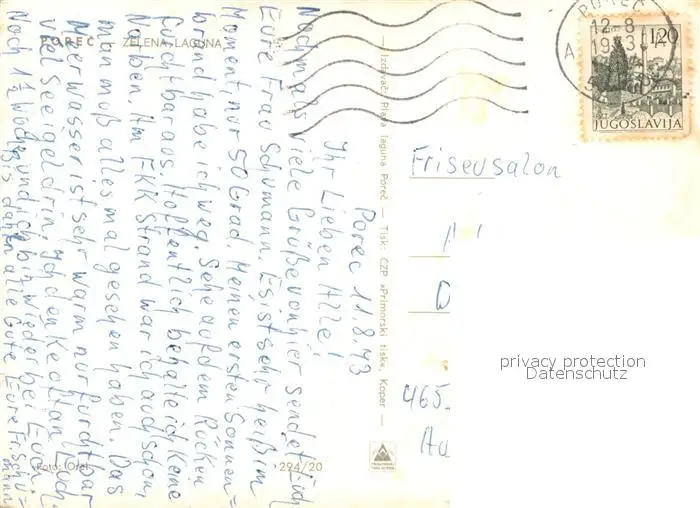 POREČ ZELENA LAGUNA
Porec 11.8.73
Ihr Lieben Alle!
Nochmals viele Grüße von hier sendet Euch
Eure Frau Schumann. Es ist sehr heiß im
Moment, nur 50 Grad. Meinen ersten Sonnen=
brand habe ich weg. Sehe auf dem Rücken
furchtbar aus. Hoffentlich behalte ich keine
Narben. Am FKK Strand war ich auch schon,
man muß alles mal gesehen haben. Das
Meerwasser ist sehr warm nur furchtbar
viel Seeigel drin. Ich den Euch.
Noch 1½ Woche und ich bin wieder bei Euch.
Bis dahin alle Gute Eure F. Schu=
mann
Foto: Orel
294/20
— Izdavač: Plava laguna Poreč — Tisk: ČZP »Primorski tisk«, Koper —
POREČ
12-8
1973
A
1,20
JUGOSLAVIJA
Friseusalon
A
D
465
Au
privacy protection
Datenschutz